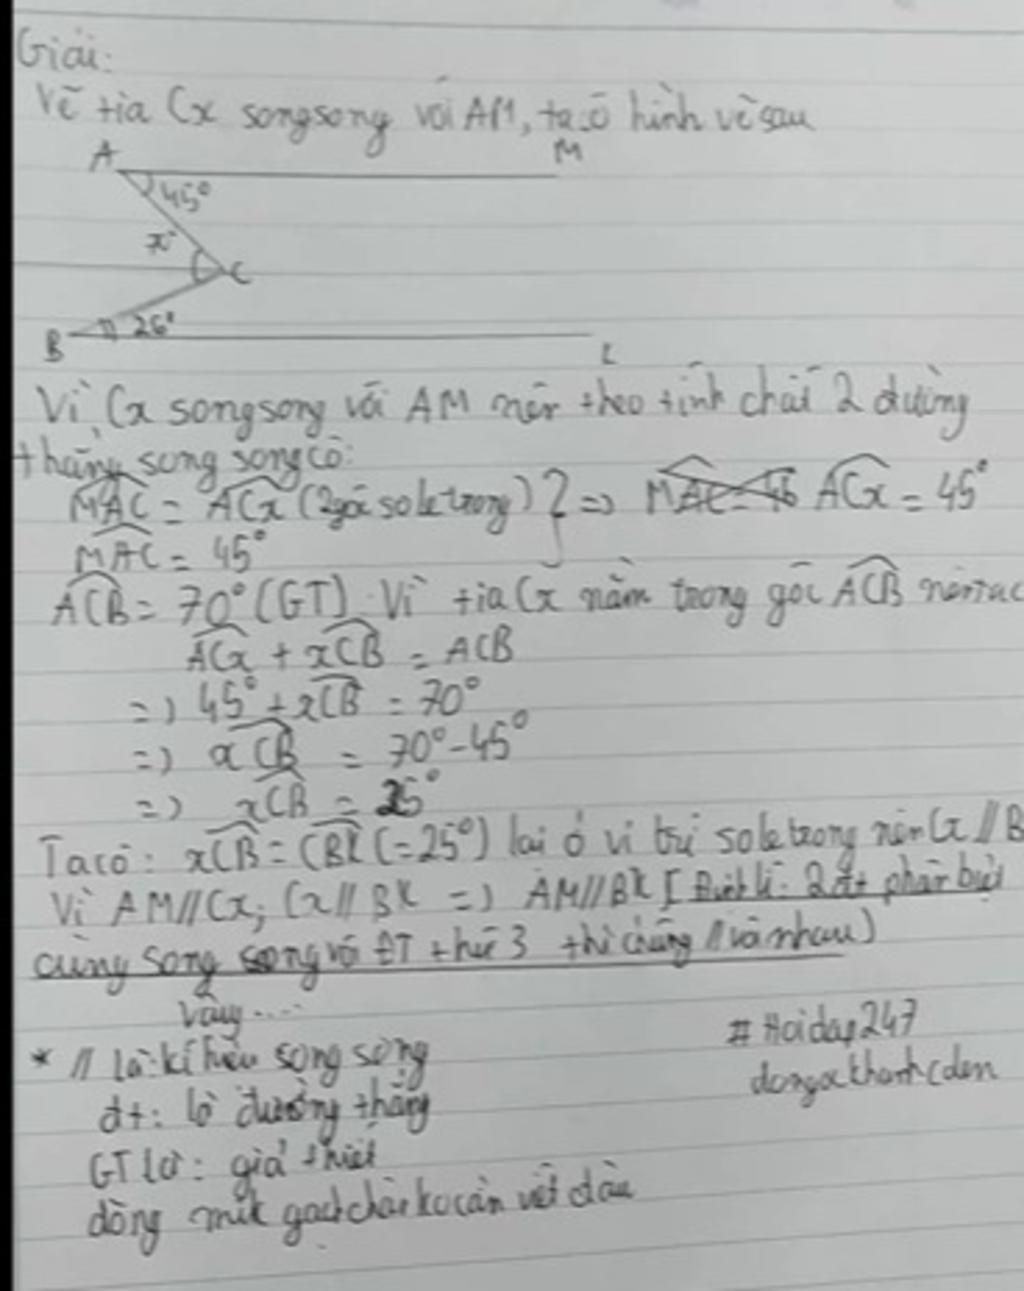 Giải:
Vẽ tia Cx songsong với AM, ta có hình vẽ sau
A M
45°
70°
C
B 26°
Vì Cx songsong với AM nên theo tính chất 2 đường
thẳng song song có:
MAC = ACx (2 góc so le trong) } => ACx = 45°
MAC = 45°
ACB = 70° (GT). Vì tia Cx nằm trong góc ACB nên ta c
ACx + xCB = ACB
=> 45° + xCB = 70°
=> xCB = 70° - 45°
=> xCB = 25°
Ta có: xCB = CBK (= 25°) lại ở vị trí so le trong nên Cx // B
Vì AM // Cx; Cx // BK => AM // BK [Định lí: 2 đt phân biệt
cùng song song với ĐT thứ 3 thì chúng // với nhau)
Vậy ....
* // là: kí hiệu song song
#Hoidap247
đt: là đường thẳng
GT là: giả thiết
dòng mik gạch chân ko cần viết đâu